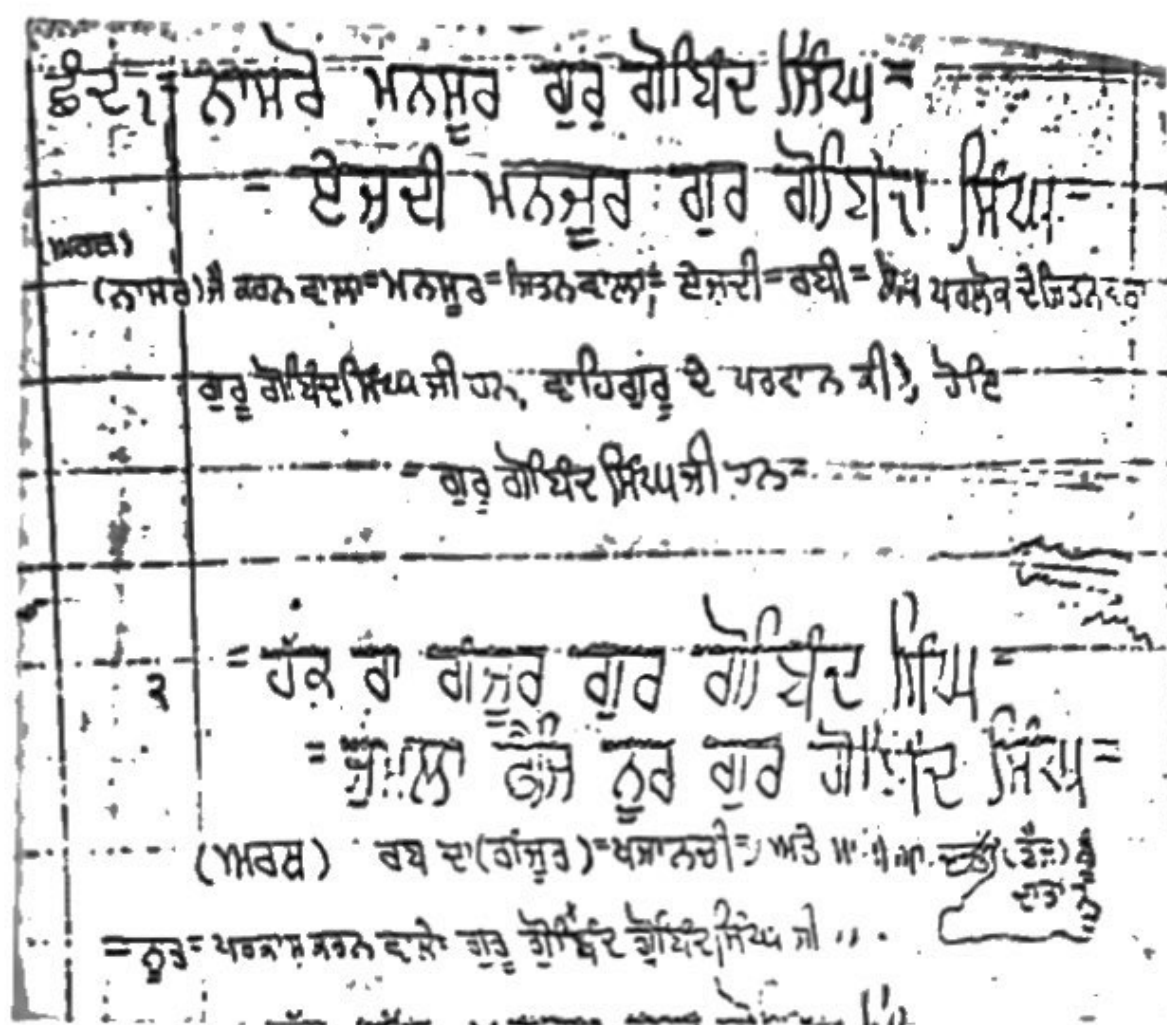 ਛੰਦ ੧ = ਨਾਸਰੋ ਮਨਸੂਰ ਗੁਰੂ ਗੋਬਿੰਦ ਸਿੰਘ =
= ਏਜ਼ਦੀ ਮਨਜ਼ੂਰ ਗੁਰ ਗੋਬਿੰਦ ਸਿੰਘ =
(ਅਰਥ)
(ਨਾਸਰੋ) ਜੈ ਕਰਨ ਵਾਲਾ = ਮਨਸੂਰ = ਜਿਤਨ ਵਾਲਾ = ਏਜ਼ਦੀ = ਰਬੀ = ਪਰਲੋਕ ਦੇ ਜਿਤਨ
ਗੁਰੂ ਗੋਬਿੰਦ ਸਿੰਘ ਜੀ ਹਨ, ਵਾਹਿਗੁਰੂ ਦੇ ਪਰਵਾਨ ਹੋਇ
= ਗੁਰੂ ਗੋਬਿੰਦ ਸਿੰਘ ਜੀ ਹਨ =
੨ = ਹੱਕ ਰਾ ਗੰਜੂਰ ਗੁਰ ਗੋਬਿੰਦ ਸਿੰਘ =
= ਫੈਜ਼ ਨੂਰ ਗੁਰ ਗੋਬਿੰਦ ਸਿੰਘ =
(ਅਰਥ) ਰਬ ਦਾ (ਗੰਜੂਰ) = ਖਜਾਨਚੀ = ਅਤੇ (ਫੈਜ਼)
ਦਾਤਾਂ
= ਨੂਰ = ਪਰਕਾਸ਼ ਕਰਨ ਵਾਲੇ ਗੁਰੂ ਗੋਬਿੰਦ ਗੋਬਿੰਦ ਸਿੰਘ ਜੀ